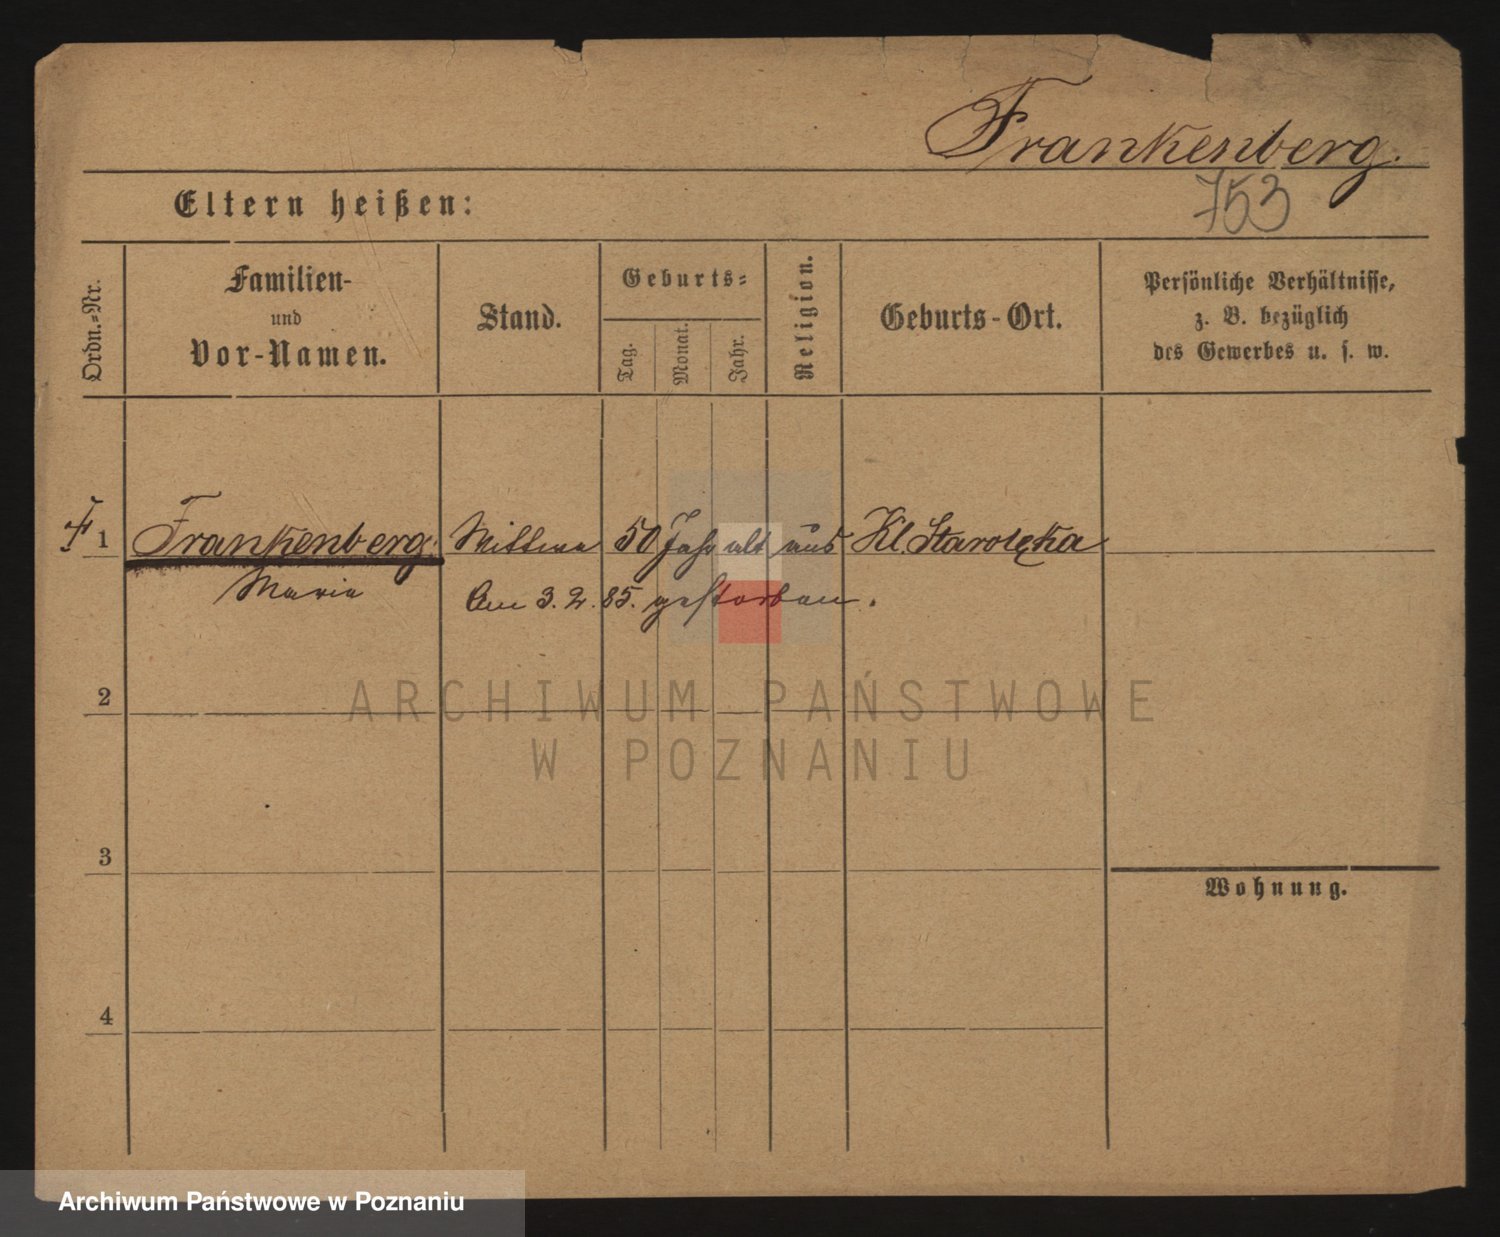 Frankenberg.
753
Eltern heißen:
Ordn.-Nr.
Familien-
und
Vor-Namen.
Stand.
Geburts-
Tag.
Monat.
Jahr.
Religion.
Geburts-Ort.
Persönliche Verhältnisse,
z. B. bezüglich
des Gewerbes u. s. w.
1 Frankenberg Wittwe 50 Jahr alt aus Kl. Starolęka
Marie Am 3. 2. 85. gestorben.
2
ARCHIWUM PAŃSTWOWE
W POZNANIU
3
Wohnung.
4
Archiwum Państwowe w Poznaniu